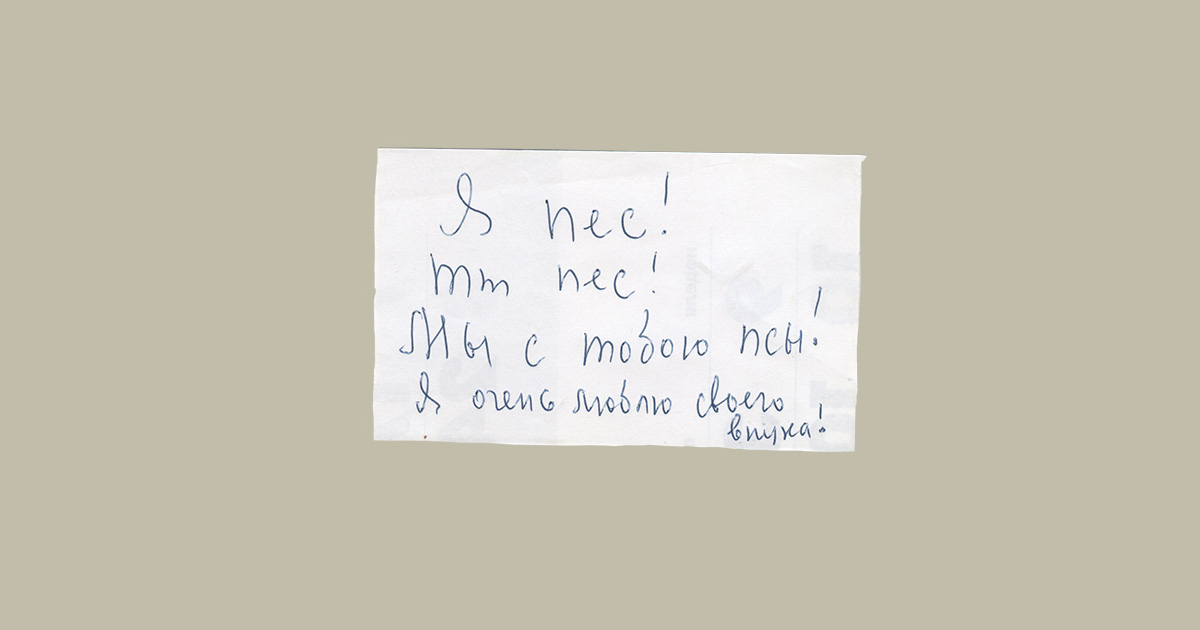 Я пес!
Тт пес!
Мы с тобою псы!
Я очень люблю своего
внука!